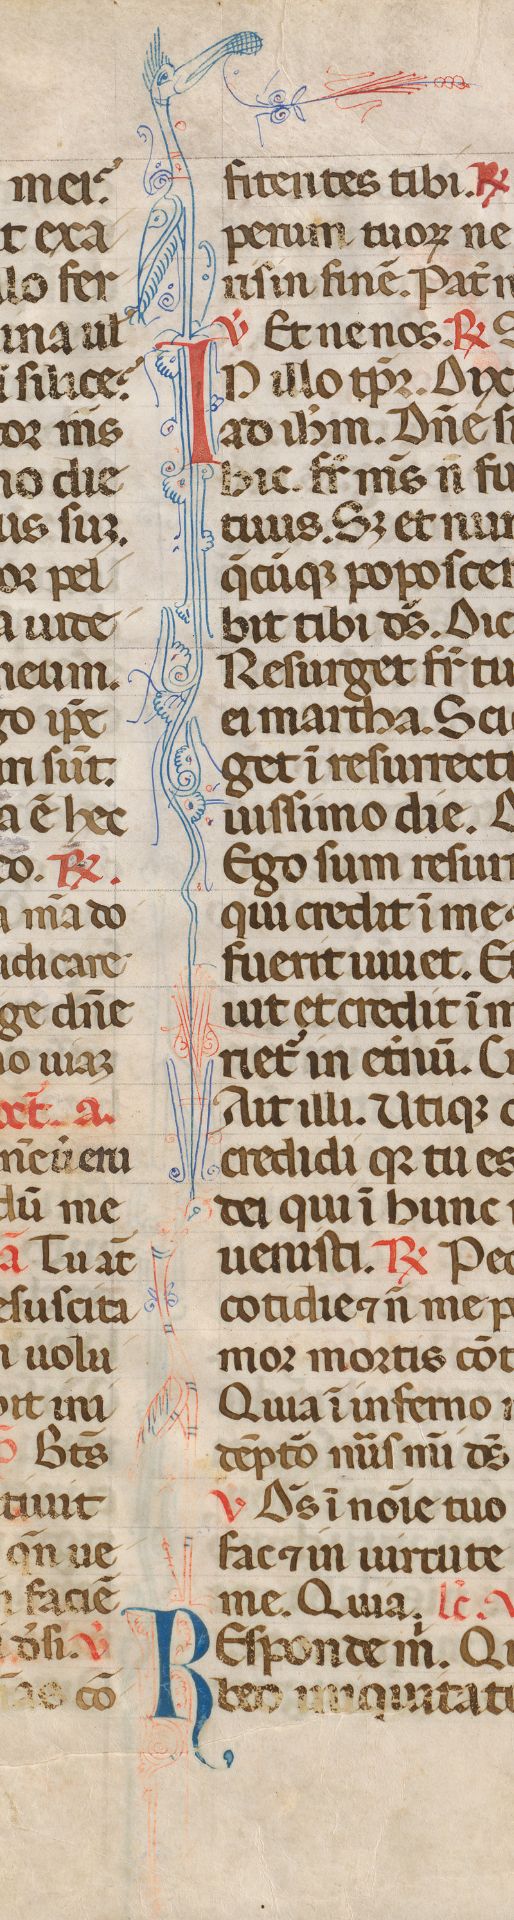 mei.
t exa
llo fer
ina ul
i silice
tor mīs
no die
us suꝝ.
or pel
a uite
meum.
go ip̄e
iri sūt.
a ē hec
co. ℟.
a mīa do
udicare
ge dn̄e
no uiaꝝ
a.
dū me
ā Tu at̄
esuscita
n uolu
Bt̄s
tiuit
qn̄ ue
n faciē
℣
n̄as cō
fitentes tibi. ℟
perum tuoꝝ ne
ris in finē. Pat̄ n
℣ Et ne nos. ℟ S
IN illo tp̄r. Dix
ad ih̄m. Dn̄e si
hic. fr̄ mīs n̄ fu
tuus. Sꝫ et nun
q̄cūqꝫ poposcer
bit tibi dṡ. Dic
Resurget fr̄ tu
ei martha. Sci
get ī resurrecti
uissimo die. D
Ego sum resur
qui credit ī me
fuerit uiuet. Et
uit et credit ī m
riet in et̄nū. C
Ait illi. Utiqꝫ d
credidi qꝛ tu es
dei qui ī hunc
uenisti. ℟ Pec
cotidie ⁊ n̄ me p
mor mortis cōt
Quia ī inferno n
dēptō nūs mi dṡ
℣ Dṡ ī noīe tuo
fac ⁊ in uirtute
me. Quia. lc̄. V
REsponde m̄. Qu
beo iniquitate